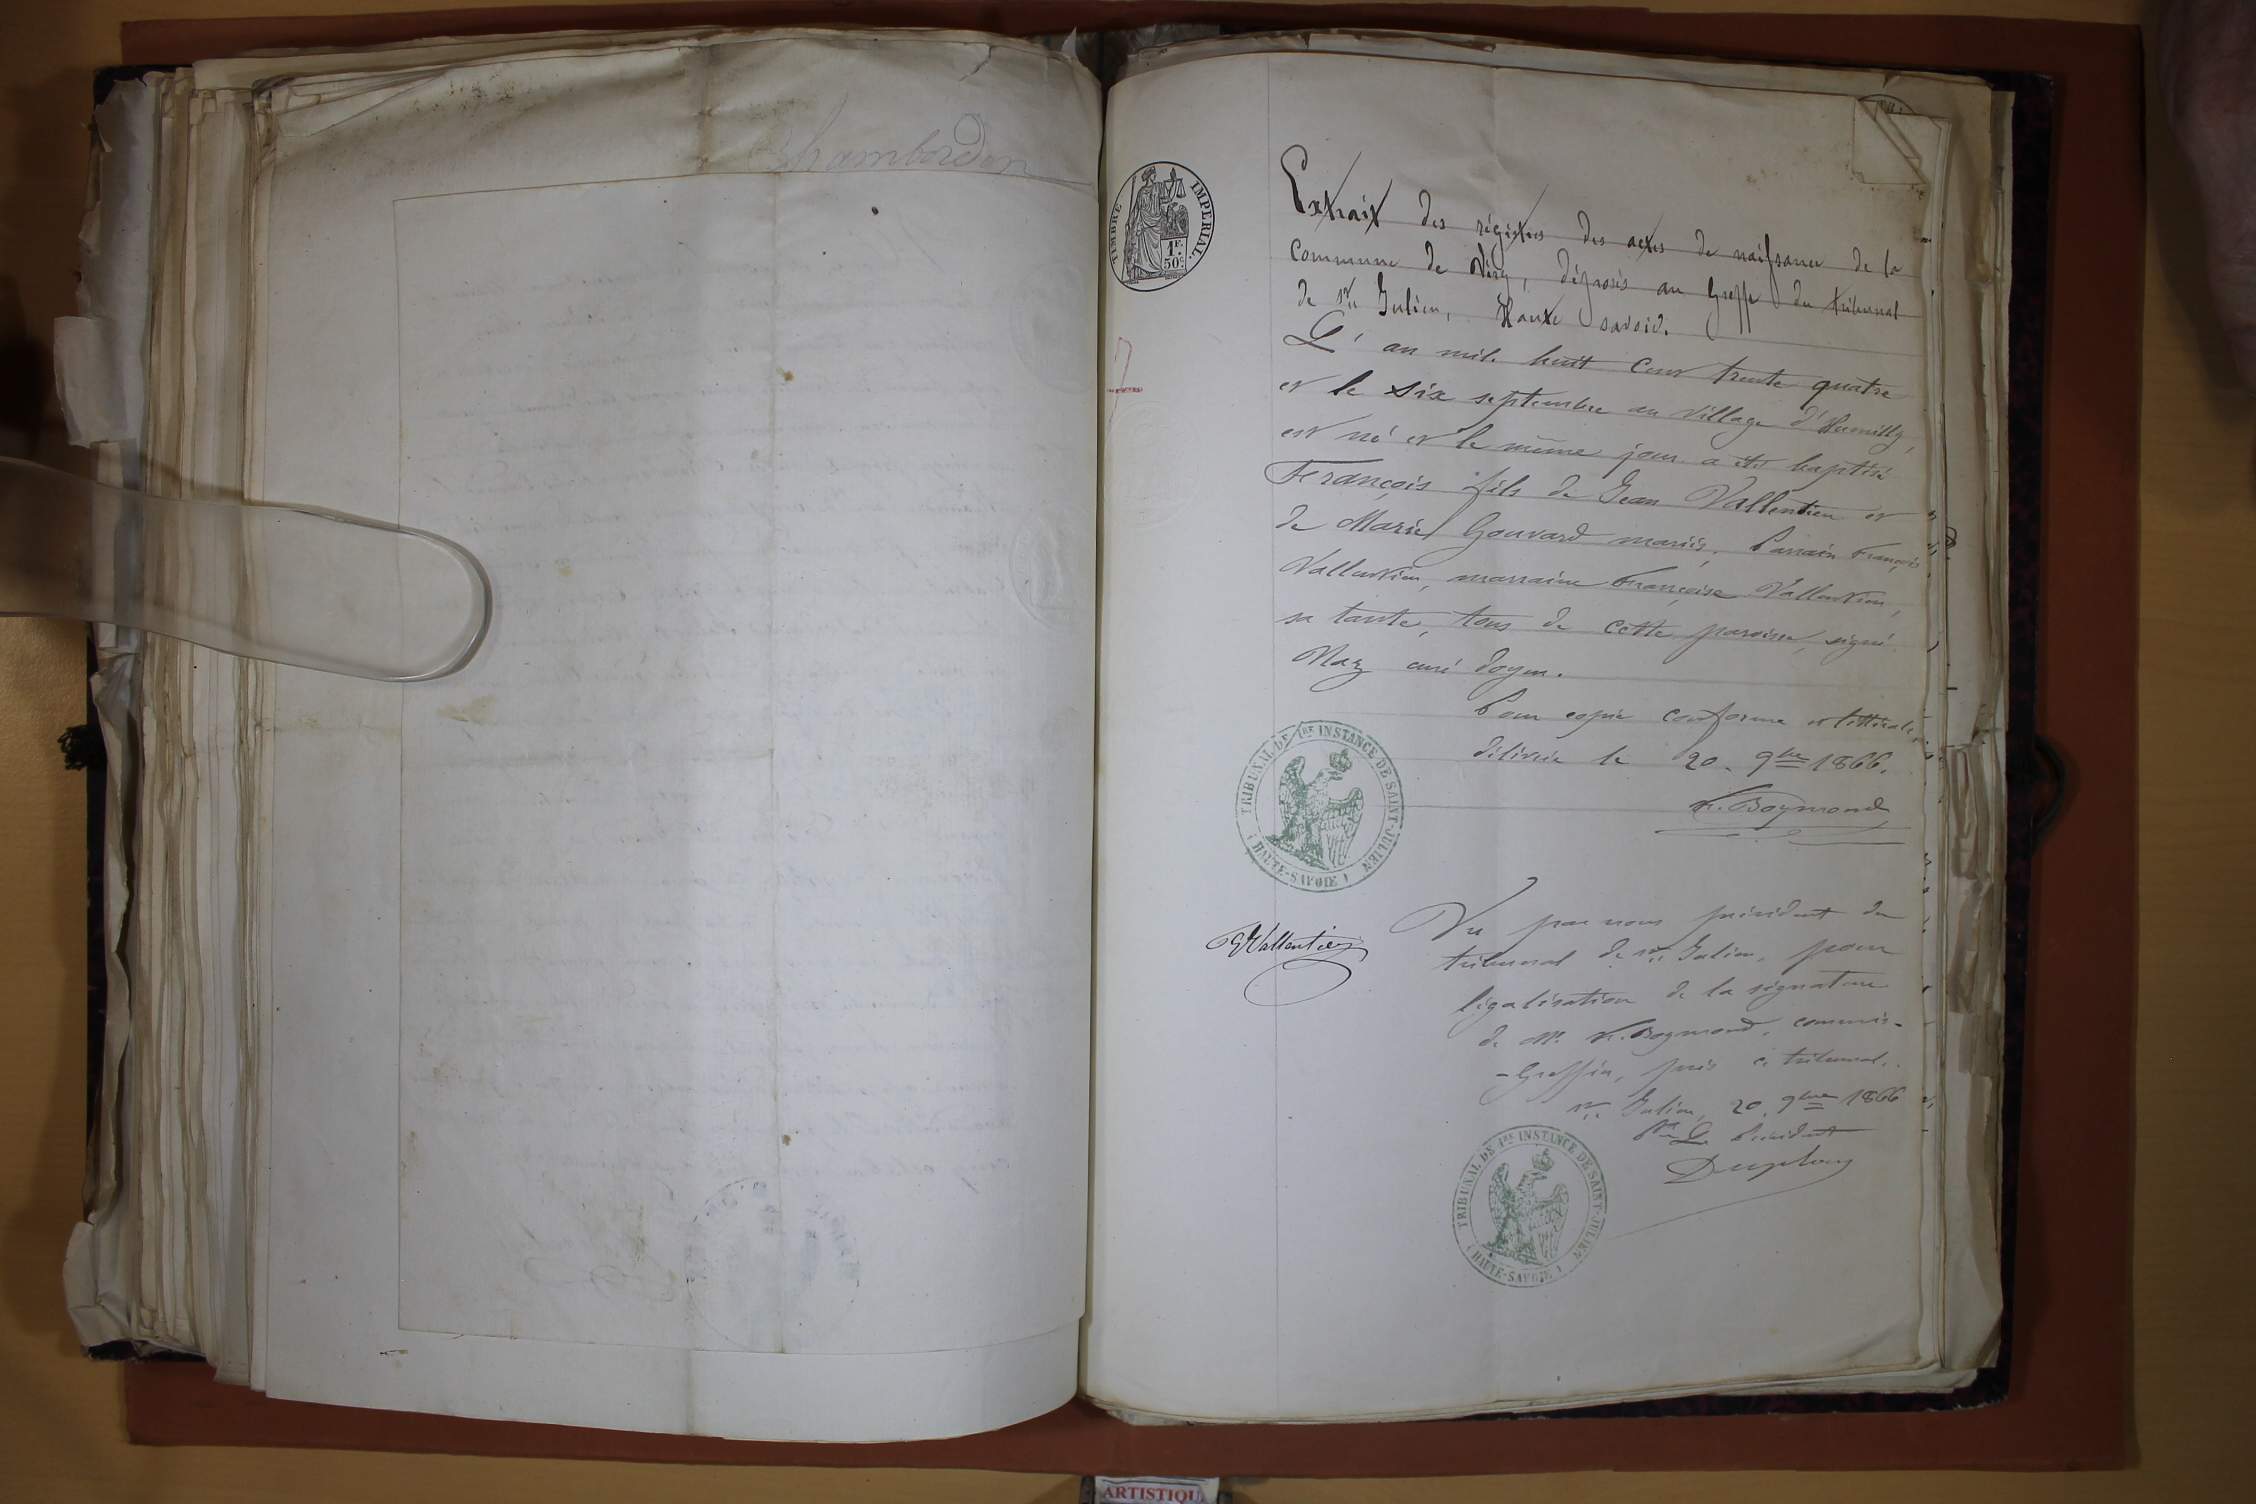 Chambordon
TIMBRE IMPERIAL.
1F.
50c
Extrait des régistres des actes de naissance de la
commune de Viry, déposés au Greffe du tribunal
de St Julien, Haute savoie.
L'an mil huit cent trente quatre
et le six septembre au village d'Humilly,
est né et le même jour a été baptisé
François fils de Jean Vallentien et
de Marie Gouvard mariés. Parrain François
Vallentien, marraine Françoise Vallentien,
sa tante, tous de cette paroisse, signé
curé doyen.
Pour copie conforme et littérale
délivrée le 20. 9bre 1866.
Fr. Boymond
TRIBUNAL DE 1RE INSTANCE DE SAINT-JULIEN
(HAUTE-SAVOIE)
Vallentien
Vu par nous président du
tribunal de St Julien, pour
légalisation de la signature
de M. Fr. Boymond, commis-
-Greffier, près ce tribunal.
St Julien, 20. 9bre 1866
Le Président
TRIBUNAL DE 1RE INSTANCE DE SAINT-JULIEN
(HAUTE-SAVOIE)
ARTISTIQU